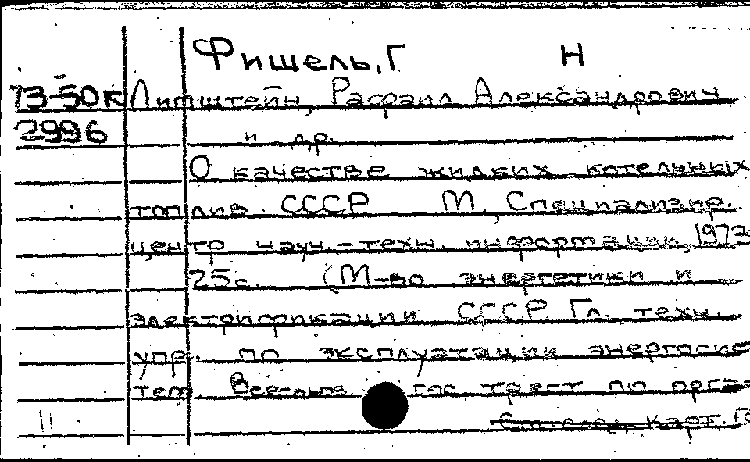 Фишель, Г Н
73-50к Липштейн, Рафаил Александрович
2996 и др.
О качестве жидких котельных
топлив СССР М., Специализир.
центр науч.-техн. информации, 1972
25с. (М-во энергетики и
электрификации СССР. Гл. техн.
упр. по эксплуатации энергосис
тем. Всесоюз гос трест по орга
Карт.